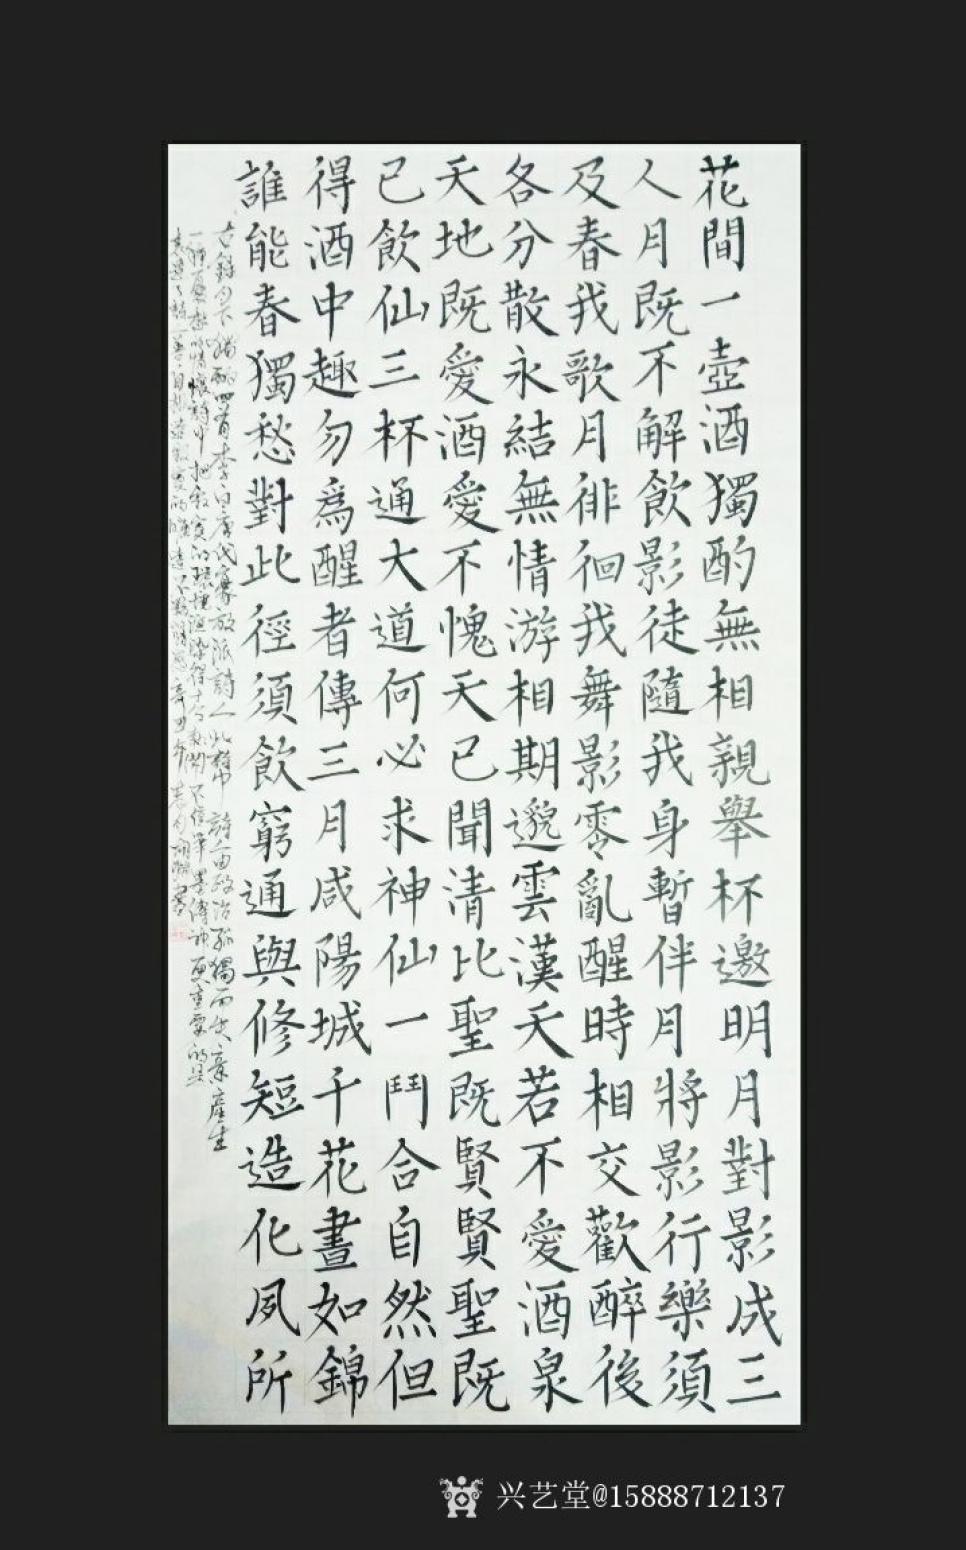 花間一壺酒獨酌無相親舉杯邀明月對影成三
人月既不解飲影徒隨我身暫伴月將影行樂須
及春我歌月徘徊我舞影零亂醒時相交歡醉後
各分散永結無情游相期邈雲漢天若不愛酒泉
天地既愛酒愛不愧天已聞清比聖既賢賢聖既
已飲仙三杯通大道何必求神仙一鬥合自然但
得酒中趣勿爲醒者傳三月咸陽城千花晝如錦
誰能春獨愁對此徑須飲窮通與修短造化夙所
月下獨酌四首李白唐代豪放派詩人此 詩人由政治孤獨而失意產生
兴艺堂@15888712137